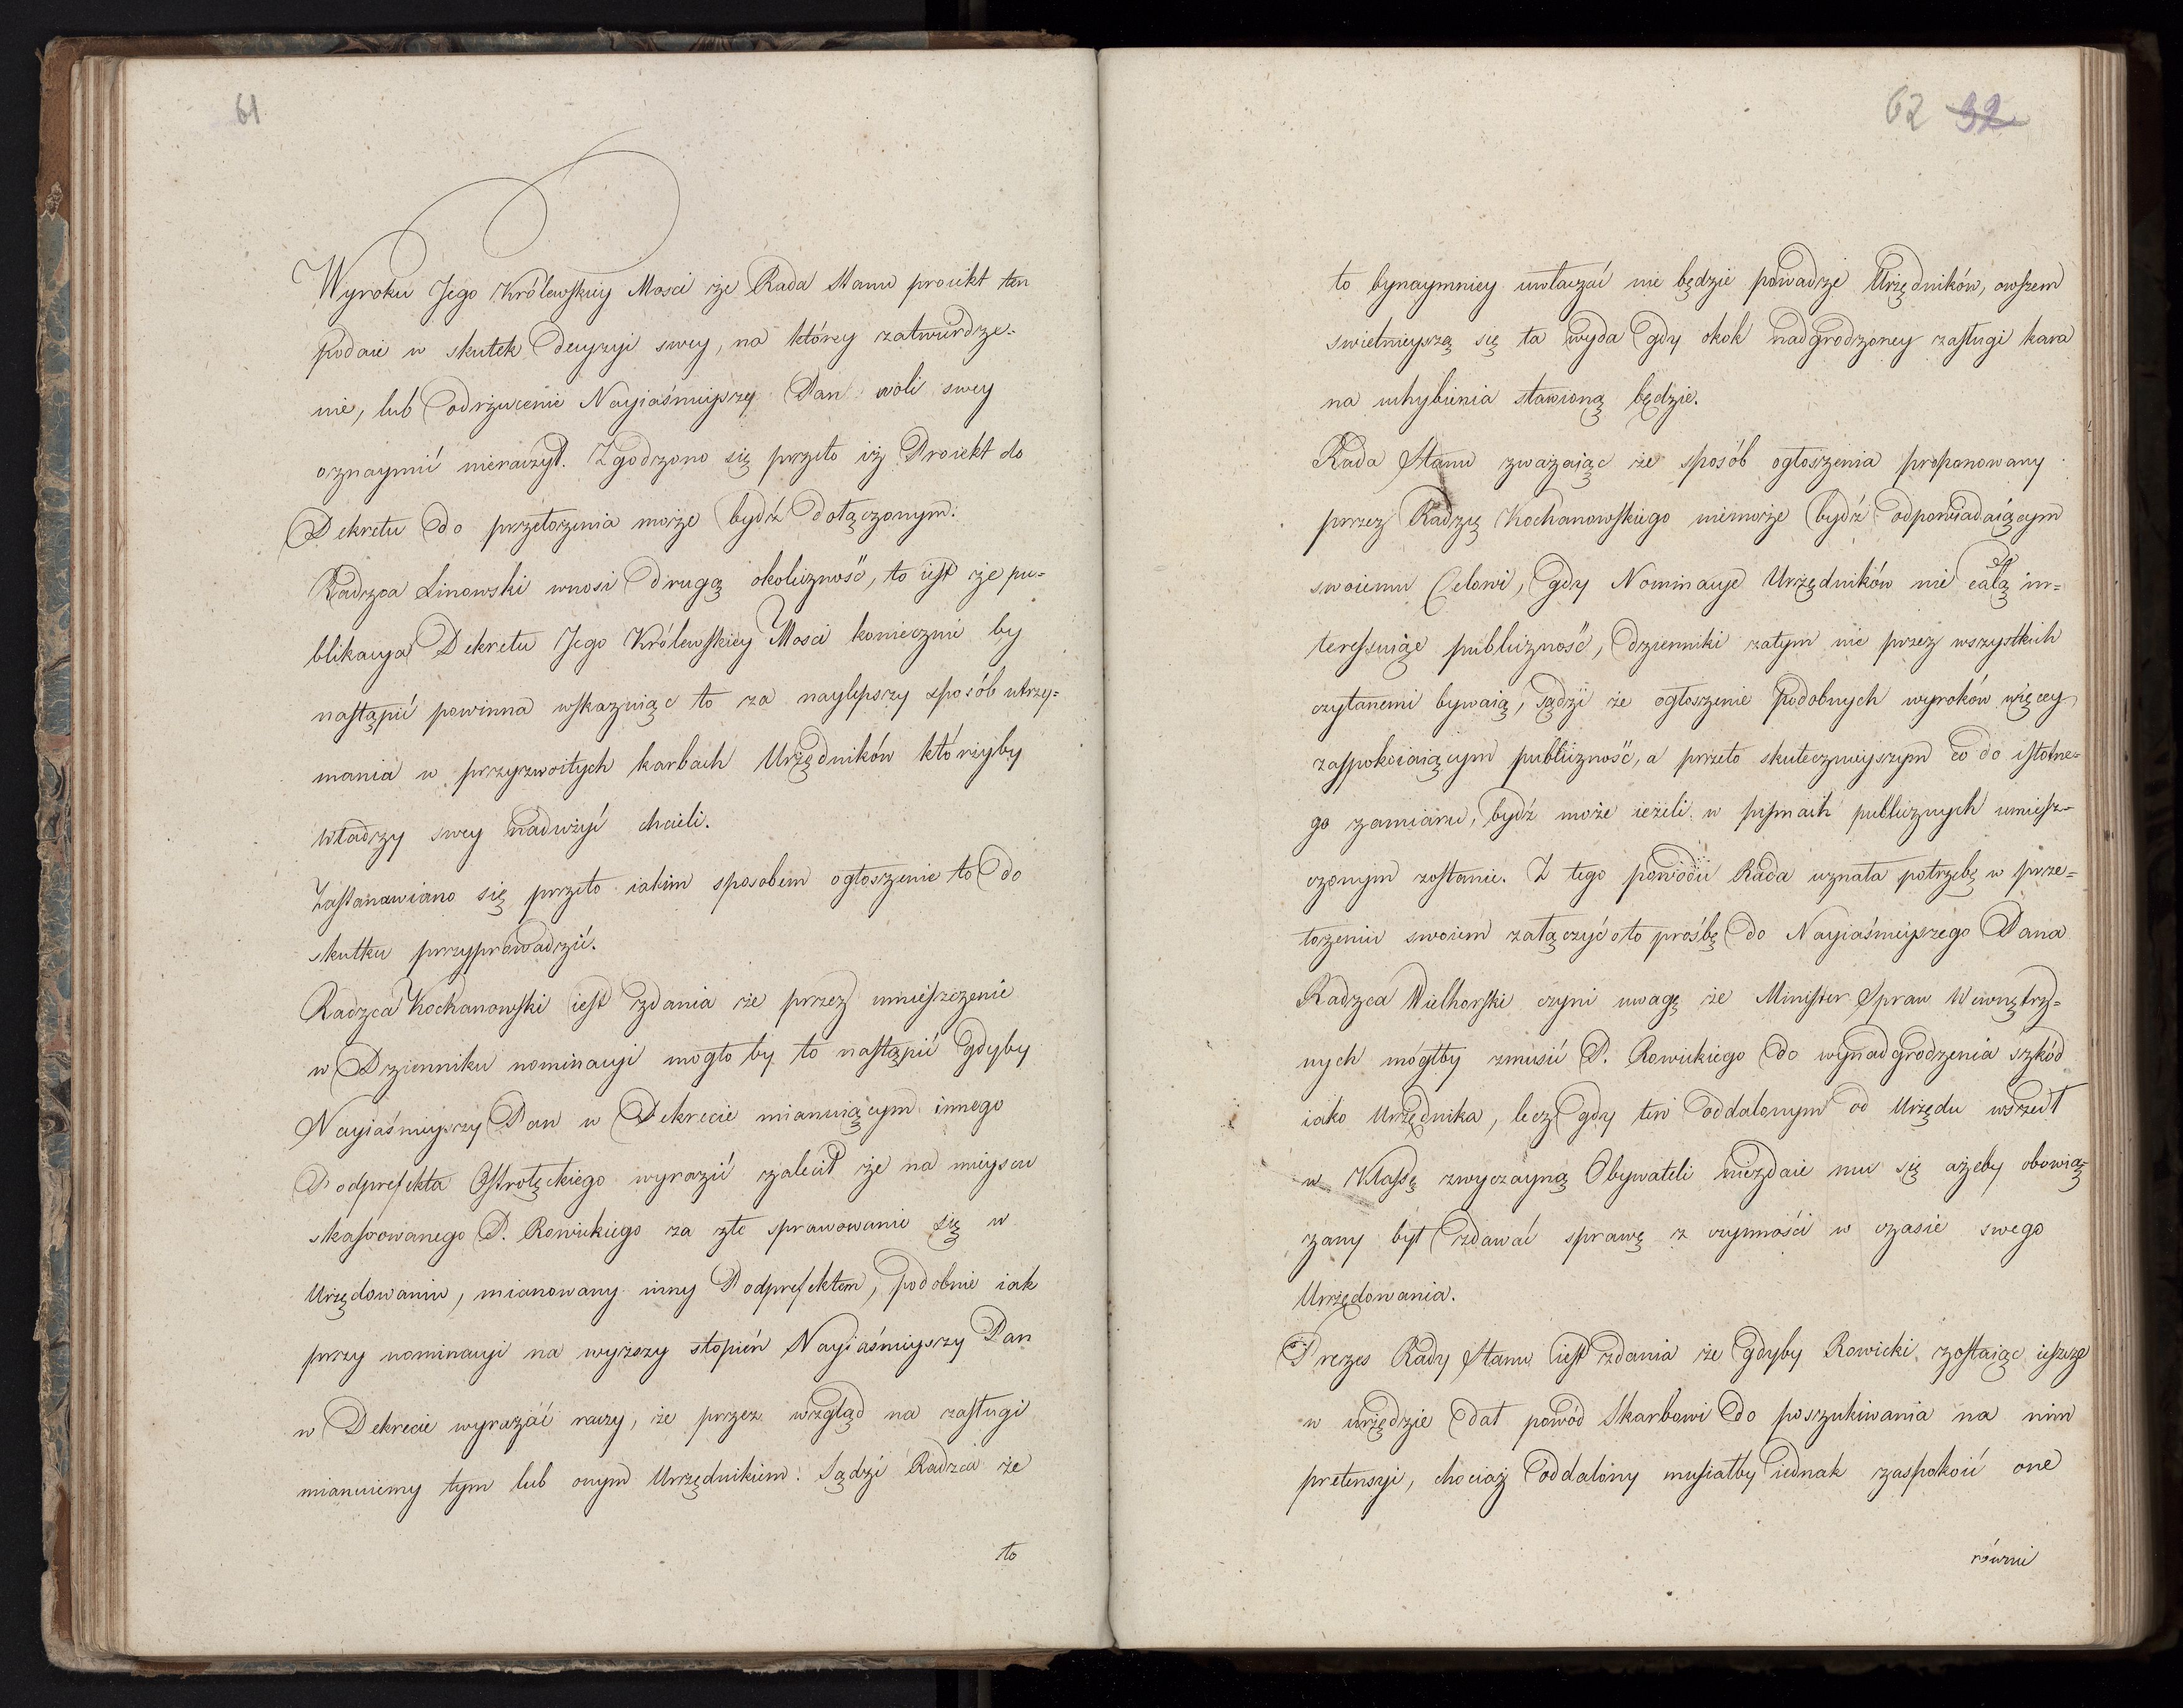 61
Wyroku Jego Królewskiey Mosci że Rada Stanu proiekt ten
podaie w skutek decyzyi swey, na którey zatwierdze=
nie, lub odrzucenie Nayiaśnieyszy Pan woli swey
oznaymić nieraczył. Zgodzono się przeto iż Proiekt do
Dekretu do przełożenia może bydź dołączonym.
Radzca Linowski wnosi drugą okoliczność, to iest że pu=
blikacya Dekretu Jego Królewskiey Mosci koniecznie by
nastąpić powinna wskazuiąc to za naylepszy sposób utrzy=
mania w przyzwoitych karbach Urzędników którzyby
władzy swey nadużyć chcieli.
Zastanawiano się przeto iakim sposobem ogłoszenie to do
skutku przyprowadzić.
Radzca Kochanowski iest zdania że przez umieszczenie
w Dzienniku nominacyi mogło by to nastąpić gdyby
Nayiaśnieyszy Pan w Dekrecie mianuiącym innego
Podprefekta Ostrołęckiego wyrazić zalecił że na mieyscu
skassowanego P. Rowickiego za złe sprawowanie się w
Urzędowaniu, mianowany inny Podprefektem, podobnie iak
przy nominacyi na wyższy stopień Nayiaśnieyszy Pan
w Dekrecie wyrażać raczy, że przez wzgląd na zasługi
mianuiemy tym lub onym Urzędnikiem. Sądzi Radzca że
to
62 32
to bynaymniey uwłaczać nie będzie powadze Urzędników, owszem
swietnieyszą się ta wyda gdy okok nadgrodzoney zasługi kara
na uchybienia stawioną będzie.
Rada Stanu zważaiąc że sposób ogłoszenia proponowany
przez Radzcę Kochanowskiego niemoże bydź odpowiadaiącym
swoiemu Celowi, gdy Nominacye Urzędników nie całą in=
teressuiąc publiczność, dzienniki zatym nie przez wszystkich
czytanemi bywaią, sądzi że ogłoszenie podobnych wyroków więcey
zaspokaiaiącym publiczność, a przeto skutecznieyszym co do istotne=
go zamiaru, bydź może ieżeli w pismach publicznych umiesz=
czonym zostanie. Z tego powodu Rada uznała potrzebę w prze=
łożeniu swoiem załączyć o to prośbę do Nayiaśnieyszego Pana
Radzca Wielhorski czyni uwagę że Minister Spraw Wewnętrz=
nych mógłby zmusić P. Rowickiego do wynadgrodzenia szkód
iako Urzędnika, lecz gdy ten oddalonym od Urzędu wszedł
w Klassę zwyczayną Obywateli niezdaie mu się ażeby obowią=
zany był zdawać sprawę z czynności w czasie swego
Urzędowania.
Prezes Rady Stanu iest zdania że gdyby Rowicki zostaiąc ieszcze
w urzędzie dał powód Skarbowi do poszukiwania na nim
pretensyi, chociaż oddalony musiałby iednak zaspokoić one
równie